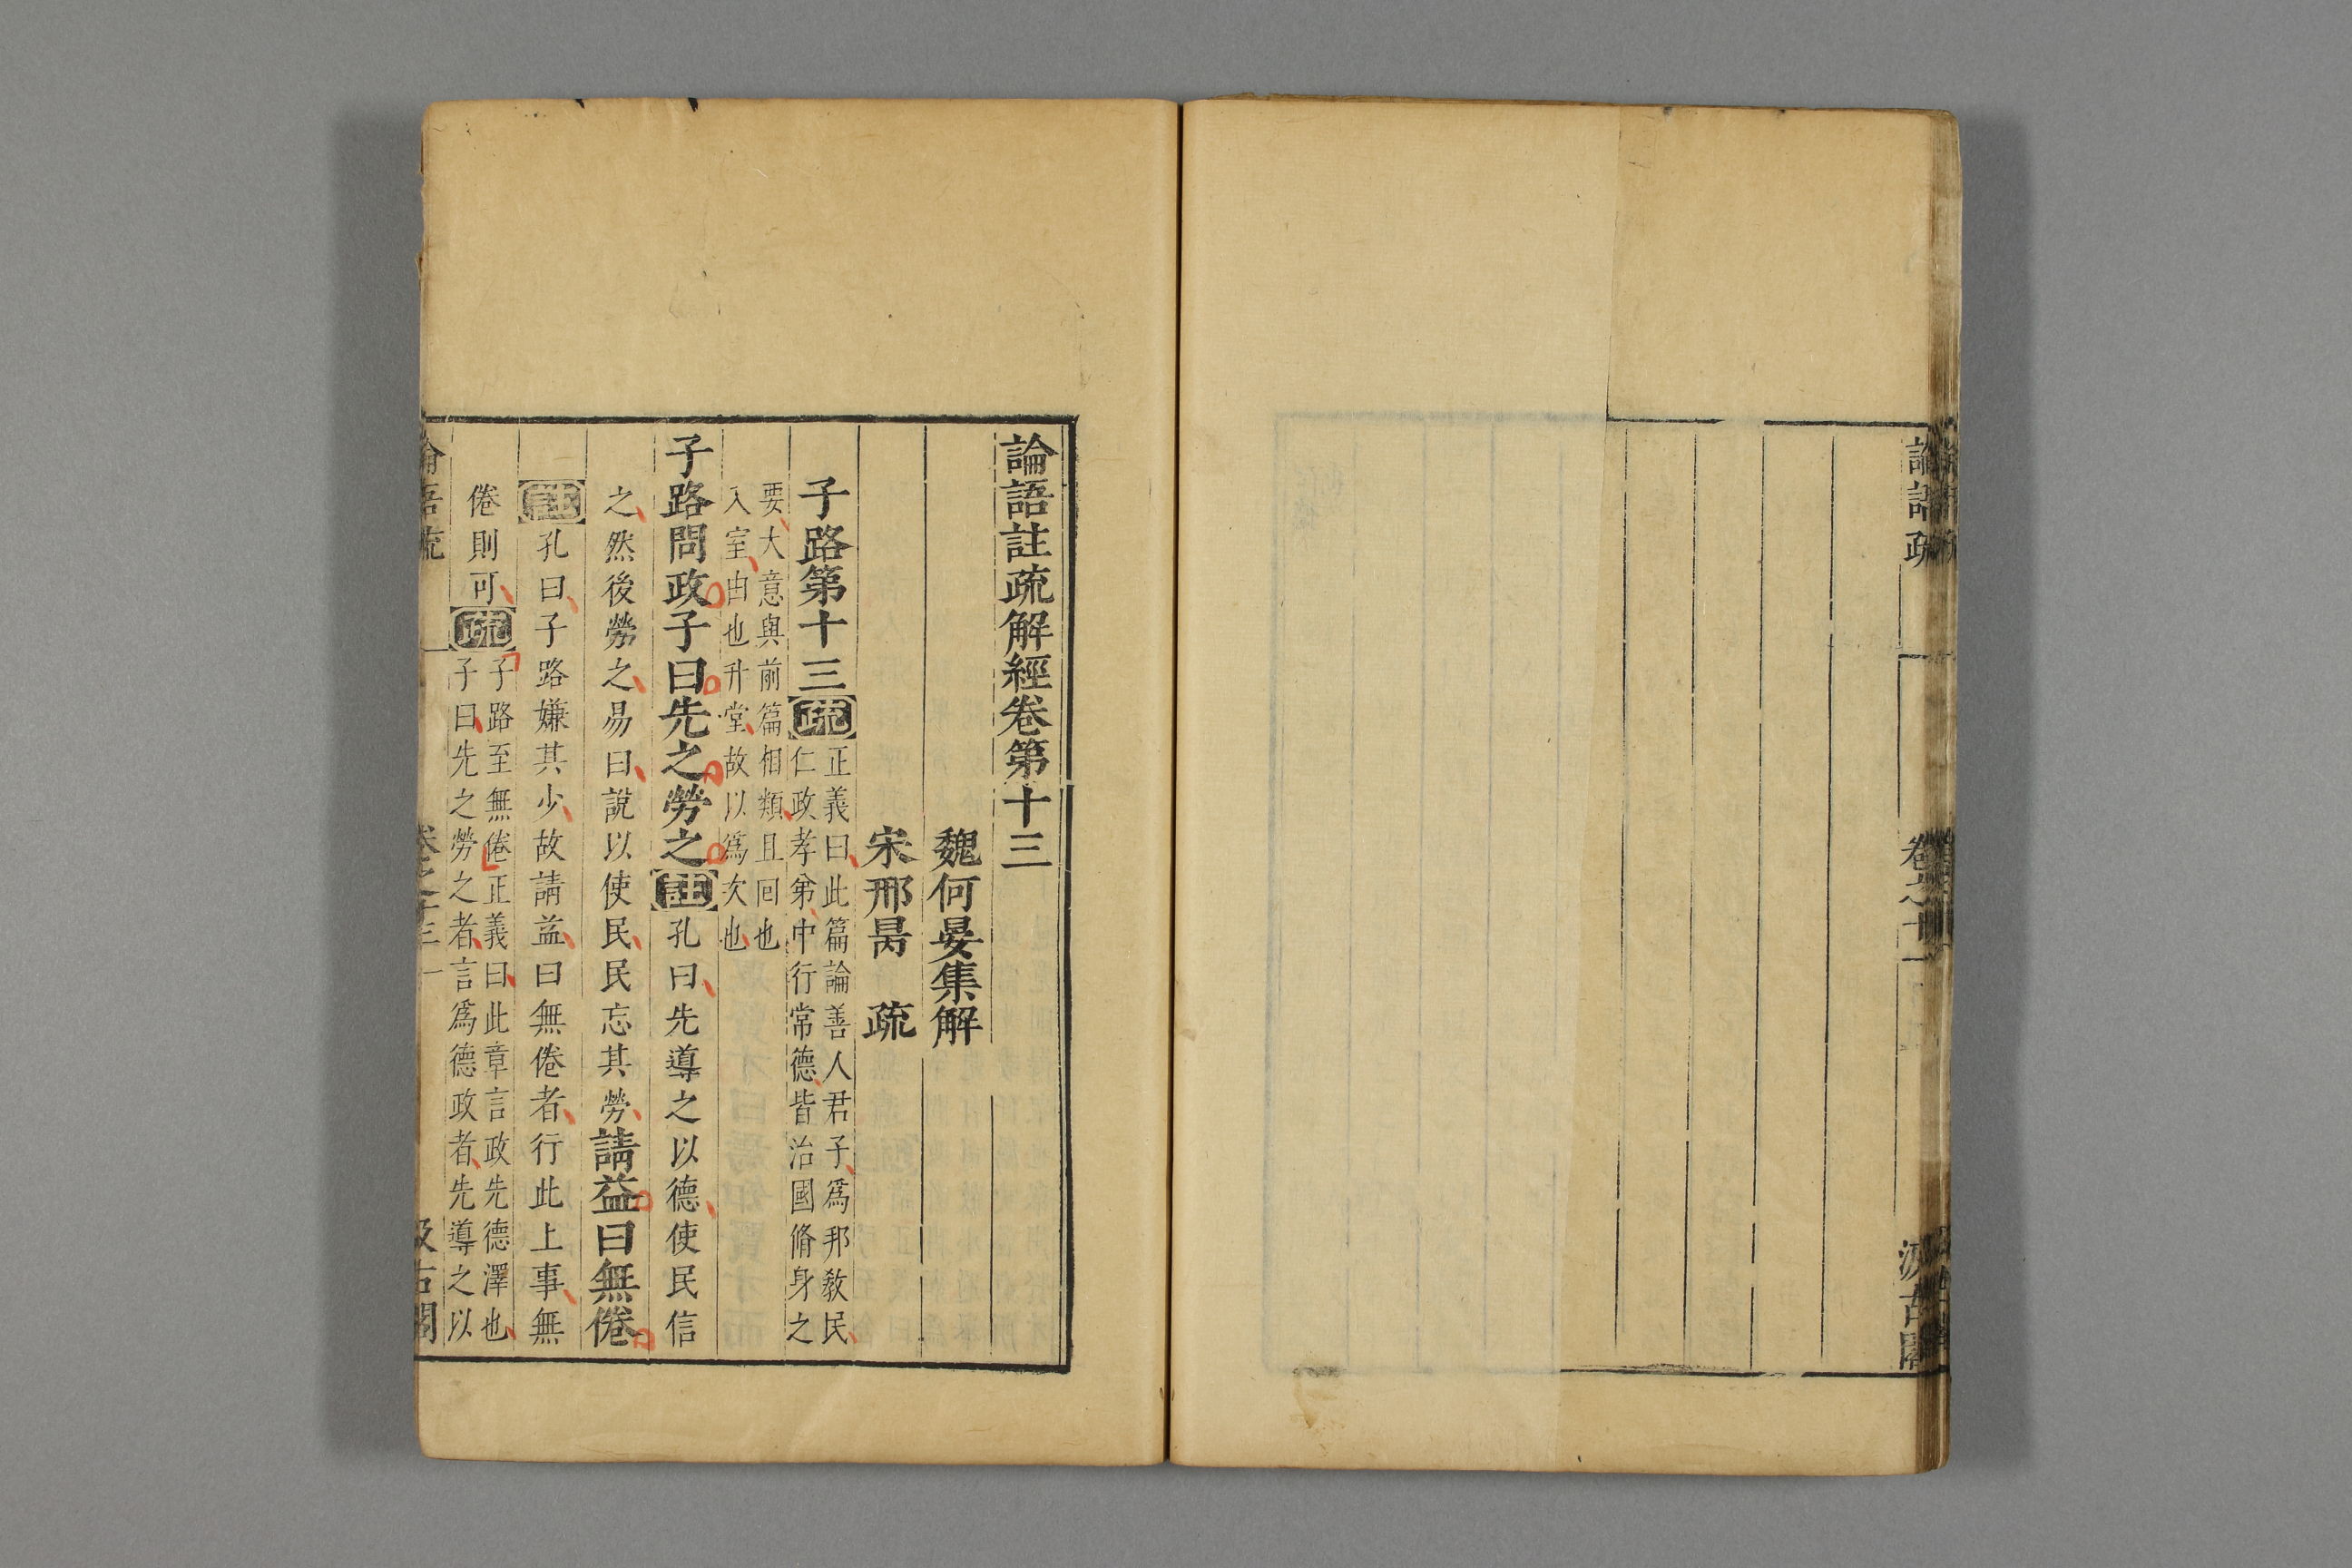 論語疏
卷之十
汲古閣
論語註疏解經卷第十三
魏何晏集解
宋邢昺 疏
子路第十三疏
正義曰此篇論善人君子爲邦敎民
仁政孝弟中行常德皆治國脩身之
要大意與前篇相類且回也
入室由也升堂故以爲次也
子路問政子曰先之勞之註孔曰先導之以德使民信
之然後勞之易曰說以使民民忘其勞請益曰無倦
註孔曰子路嫌其少故請益曰無倦者行此上事無
倦則可疏
子路至無倦正義曰此章言政先德澤也
子曰先之勞之者言爲德政者先導之以
論語疏
卷之十三
一
汲古閣